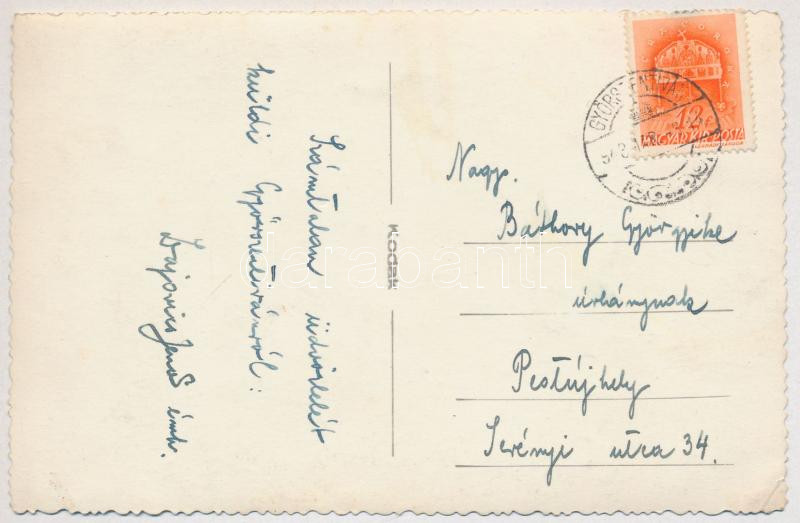 Számtalan üdvözletét
küldi Győrszentivánról:
Jenő
Kodak
MAGYAR KIR. POSTA
GYŐRSZENTIVÁN
Nagys.
Báthory Györgyike
úrhánynak
Pestújhely
Serényi utca 34.
darabanth